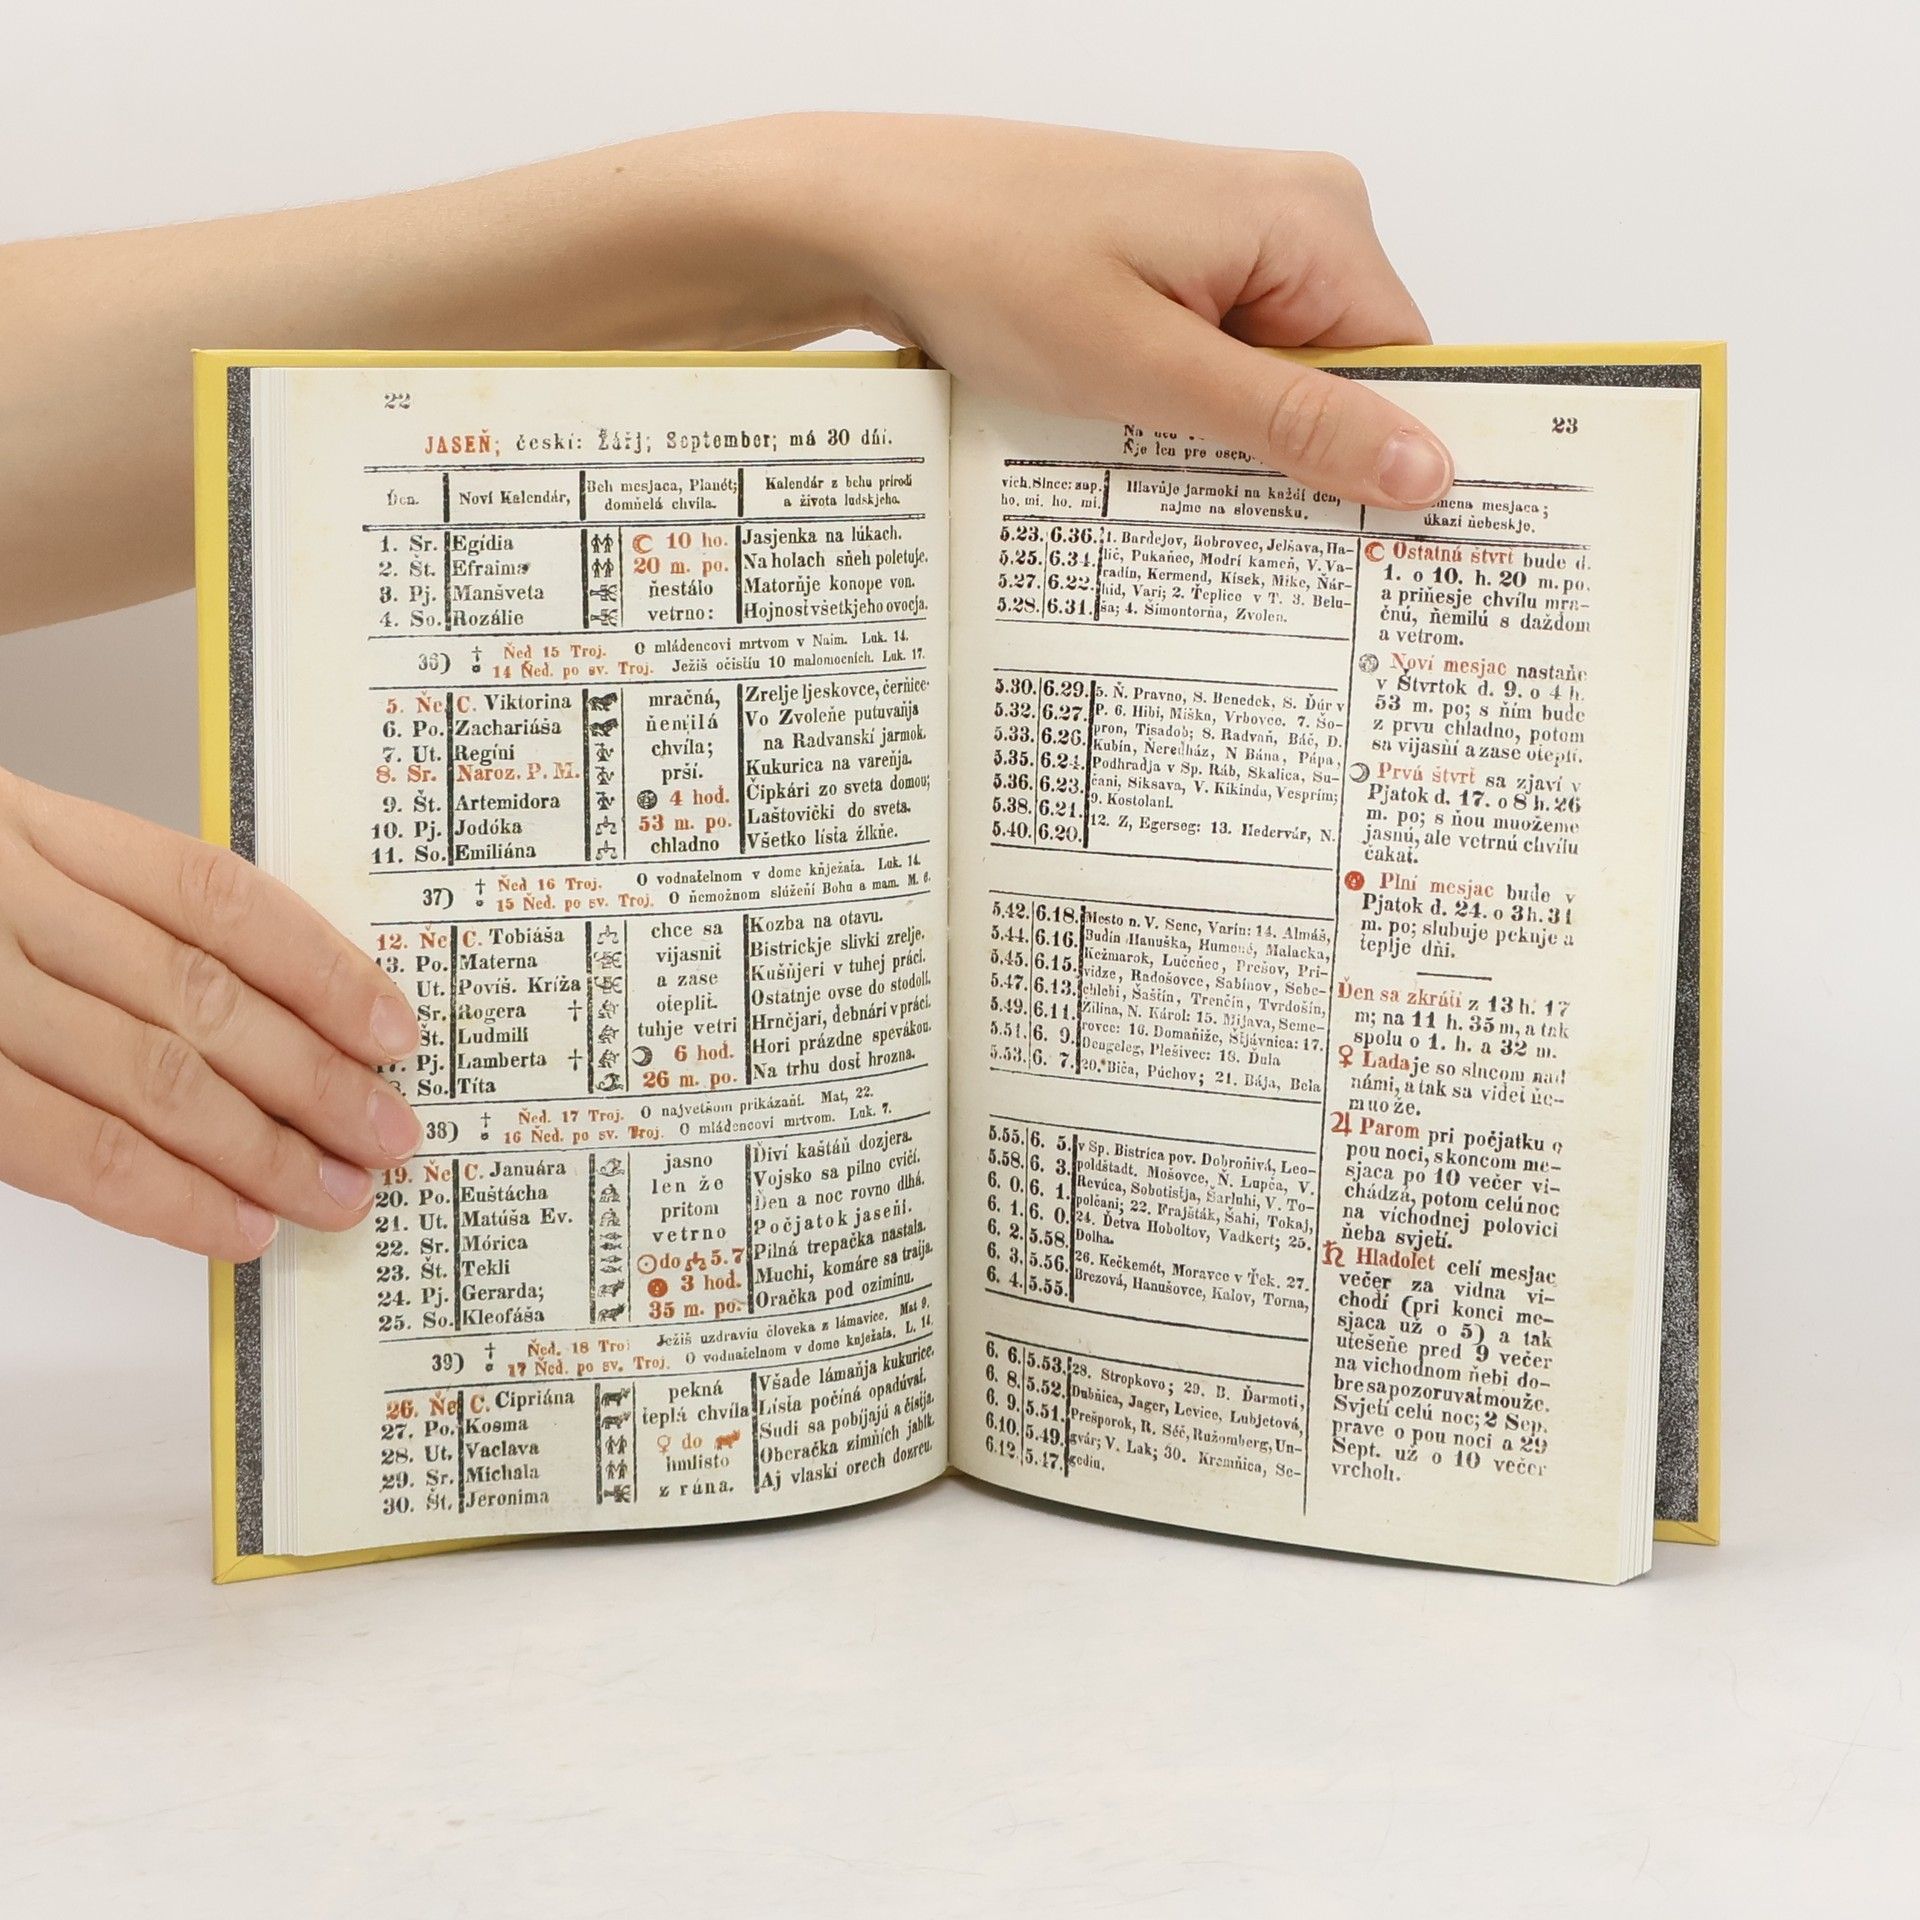 22
JASEŇ; českí: Září; September; má 30 dňí.
Ďen.
Noví Kalendár,
Beh mesjaca, Planét;
domňelá chvíla.
Kalendár z behu prírodi
a života ludskjeho.
1. Sr. Egídia ☾ 10 ho. Jasjenka na lúkach.
2. Št. Efraima 20 m. po. Na holach sňeh poletuje.
3. Pj. Manšveta ňestálo Matorňje konope von.
4. So. Rozálie vetrno: Hojnosť všetkjeho ovocja.
36) † Ňeď 15 Troj. O mládencovi mrtvom v Naim. Luk. 14.
14 Ňed. po sv. Troj. Ježiš očistiu 10 malomocních. Luk. 17.
5. Ňe C. Viktorina mračná, Zrelje ljeskovce, černice
6. Po. Zachariáša ňemilá Vo Zvoleňe putuvaňja
7. Ut. Regíni chvíla; na Radvanskí jarmok.
8. Sr. Naroz. P. M. prší. Kukurica na vareňja.
9. Št. Artemidora 4 hod. Čipkári zo sveta domou;
10. Pj. Jodóka 53 m. po. Laštovički do sveta.
11. So. Emiliána chladno Všetko lísťa žlkňe.
37) † Ňed 16 Troj. O vodnatelnom v dome kňježaťa. Luk. 14.
15 Ňed. po sv. Troj. O ňemožnom slúžení Bohu a mam. M. 6.
12. Ňe C. Tobiáša chce sa Kozba na otavu.
13. Po. Materna vijasniť Bistrickje slivki zrelje.
Ut. Povíš. Kríža a zase Kušňjeri v tuhej práci.
Sr. Rogera † otepliť. Ostatnje ovse do stodolí.
Št. Ludmilí tuhje vetri Hrnčjari, debnári v práci.
17. Pj. Lamberta † ☽ 6 hod. Hori prázdne spevákou.
So. Títa 26 m. po. Na trhu dosť hrozna.
38) † Ňed. 17 Troj. O najvetšom prikázaňí. Mat, 22.
16 Ňed. po sv. Troj. O mládencovi mrtvom. Luk. 7.
19. Ňe C. Januára jasno Ďiví kaštáň dozjera.
20. Po. Eustácha len že Vojsko sa pilno cvičí.
21. Ut. Matúša Ev. pritom Ďen a noc rovno dlhá.
22. Sr. Mórica vetrno Počjatok jaseňi.
23. Št. Tekli ☉ do ♎ 5. 7 Pilná trepačka nastala.
24. Pj. Gerarda; 3 hod. Muchi, komáre sa traťja.
25. So. Kleofáša 35 m. po. Oračka pod oziminu.
39) † Ňed. 18 Tro: Ježiš uzdraviu človeka z lámavice. Mat 9.
17 Ňed. po sv. Troj. O vodnatelnom v dome knježaťa, L. 14.
26. Ňe C. Cipriána pekná Všade lámaňja kukurice.
27. Po. Kosma teplá chvíla Lísťa počíná opadúvať.
28. Ut. Vaclava ♀ do Sudi sa pobíjajú a čisťja.
29. Sr. Michala hmlisto Oberačka zimňích jablk.
30. Št. Jeronima z rána. Aj vlaskí orech dozreu.
23
Ňje len pre
vích. Slnce: zap.
ho. mi. ho. mi.
Hlavňje jarmoki na každí ďen,
najme na slovensku.
mena mesjaca;
úkazi ňebeskje.
5.23. 6.36. 1. Bardejov, Bobrovec, Jelšava, Ha-
5.25. 6.34. lič, Pukaňec, Modrí kameň, V. Va-
5.27. 6.22. radín, Kermend, Kísek, Mike, Ňár-
hid, Vari; 2. Ťeplice v T. 3. Belu-
5.28. 6.31. ša; 4. Šimontorňa, Zvolen.
5.30. 6.29. 5. Ň. Pravno, S. Benedek, S. Ďúr v
5.32. 6.27. P. 6. Hibi, Miška, Vrbovce. 7. Šo-
5.33. 6.26. pron, Tisadob; S. Radvaň, Báč, D.
Kubín, Ňeredház, N Bána, Pápa,
5.35. 6.24. Podhradja v Sp. Ráb, Skalica, Su-
5.36. 6.23. čani, Siksava, V. Kikinda, Vesprím;
5.38. 6.21. 9. Kostolani.
5.40. 6.20. 12. Z, Egerseg: 13. Hedervár, N.
5.42. 6.18. Mesto n. V. Senc, Varín: 14. Almáš,
5.44. 6.16. Budín Hanuška, Humené, Malacka,
5.45. 6.15. Kežmarok, Lučeňec, Prešov, Pri-
vidze, Radošovce, Sabinov, Sebe-
5.47. 6.13. chlebi, Šaštín, Trenčín, Tvrdošín,
5.49. 6.11. Žilina, N. Károl: 15. Mijava, Seme-
5.51. 6. 9. rovce: 16. Domaňiže, Štjavnica: 17.
Dengeleg, Plešivec: 18. Ďula
5.53. 6. 7. 20. Biča, Púchov; 21. Bája, Bela
5.55. 6. 5. v Sp. Bistrica pov. Dobroňivá, Leo-
5.58. 6. 3. poldštadt. Mošovce, Ň. Lupča, V.
6. 0. 6. 1. Revúca, Sobotisťja, Šarluhi, V. To-
6. 1. 6. 0. polčani; 22. Frajšták, Šahi, Tokaj,
6. 2. 5.58. 24. Ďetva Hoboltov, Vadkert; 25.
Dolha.
6. 3. 5.56. 26. Kečkemét, Moravce v Ťek. 27.
6. 4. 5.55. Brezová, Hanušovce, Kalov, Torna,
6. 6. 5.53. 28. Stropkovo; 29. B. Ďarmoti,
6. 8. 5.52. Dubňica, Jager, Levice, Lubjetová,
6. 9. 5.51. Prešporok, R. Séč, Ružomberg, Un-
6.10. 5.49. gvár; V. Lak; 30. Kremňica, Se-
6.12. 5.47. gedín.
☾ Ostatná štvrť bude d.
1. o 10. h. 20 m. po.
a priňesje chvílu mra-
čnú, ňemilú s dažďom
a vetrom.
Noví mesjac nastaňe
v Štvrtok d. 9. o 4 h.
53 m. po; s ňím bude
z prvu chladno, potom
sa vijasňí a zase oteplí.
☽ Prvá štvrť sa zjaví v
Pjatok d. 17. o 8 h. 26
m. po; s ňou muožeme
jasnú, ale vetrnú chvílu
čakať.
Plní mesjac bude v
Pjatok d. 24. o 3 h. 31
m. po; slubuje peknje a
teplje dňi.
Ďen sa zkráti z 13 h. 17
m; na 11 h. 35 m, a tak
spolu o 1. h. a 32 m.
♀ Lada je so slncom nad
námi, a tak sa viďeť ňe-
muože.
♃ Parom pri počjatku o
pou noci, s koncom me-
sjaca po 10 večer vi-
chádza, potom celú noc
na víchodnej polovici
ňeba svjeti.
♄ Hladolet celí mesjac
večer za vidna vi-
chodí (pri konci me-
sjaca už o 5) a tak
utešeňe pred 9 večer
na víchodnom ňebi do-
bre sa pozoruvať muože.
Svjeti celú noc; 2 Sep.
prave o pou noci a 29
Sept. už o 10 večer
vrcholí.